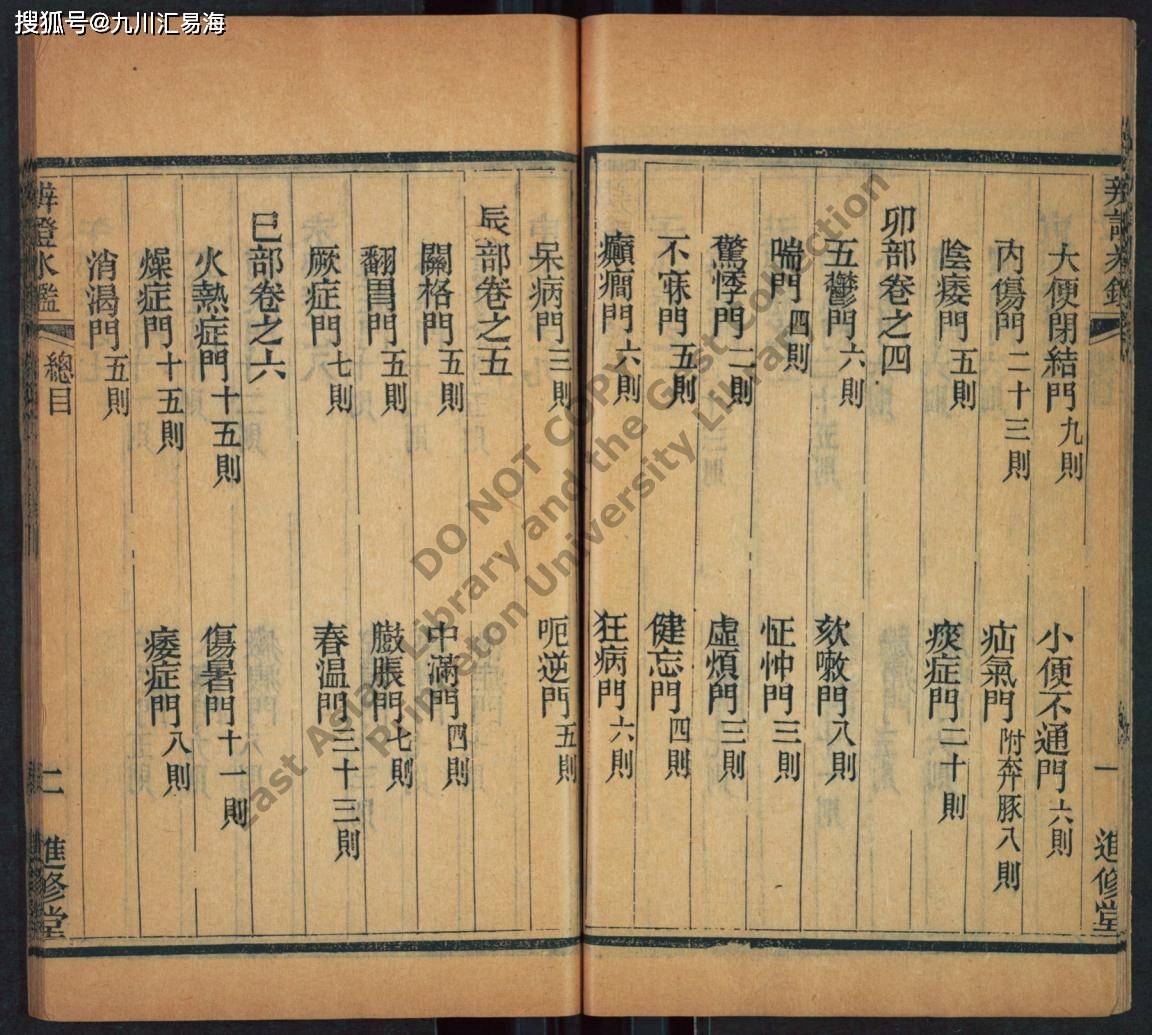 搜狐号@九川汇易海
大便閉結門九則 小便不通門六則
內傷門二十三則 疝氣門附奔豚八則
陰痿門五則 痰症門二十則
卯部卷之四
五鬱門六則 欬嗽門八則
喘門四則 怔忡門三則
驚悸門二則 虛煩門三則
不寐門五則 健忘門四則
癲癇門六則 狂病門六則
一 進修堂
呆病門三則 呃逆門五則
辰部卷之五
關格門五則 中滿門四則
翻胃門五則 臌脹門七則
厥症門七則 春溫門三十三則
巳部卷之六
火熱症門十五則 傷暑門十一則
燥症門十五則 痿症門八則
消渴門五則
辨證冰鑑 總目 二 進修堂
DO NOT COPY
East Asian Library and the Gest Collection
Princeton University Library